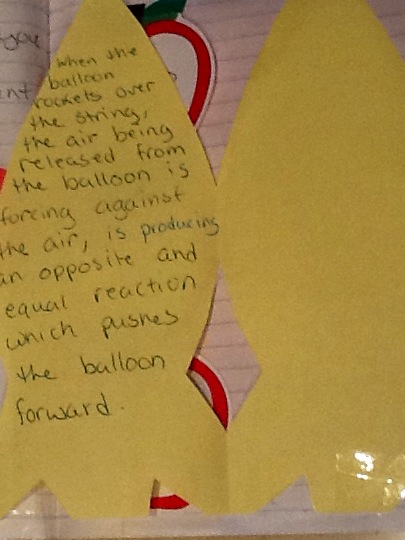 you
when the
balloon
rockets over
the string,
the air being
released from
the balloon is
forcing against
the air, is producing
an opposite and
equal reaction
which pushes
the balloon
forward.